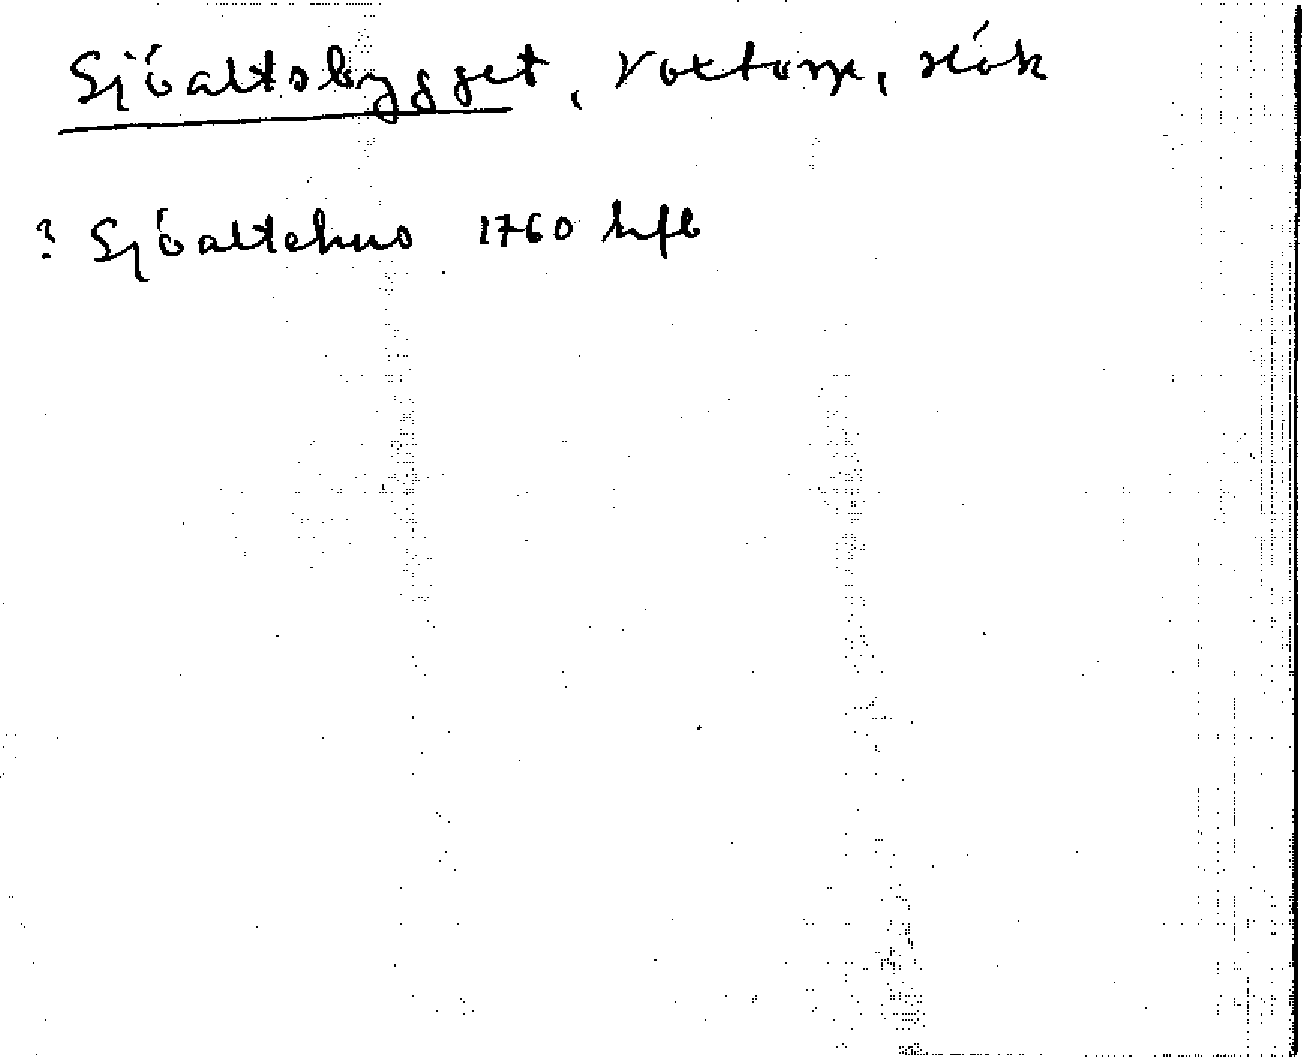 Sjöaltsbygget, Voxtorp, slók
? Sjöaltehus 1760 hfl